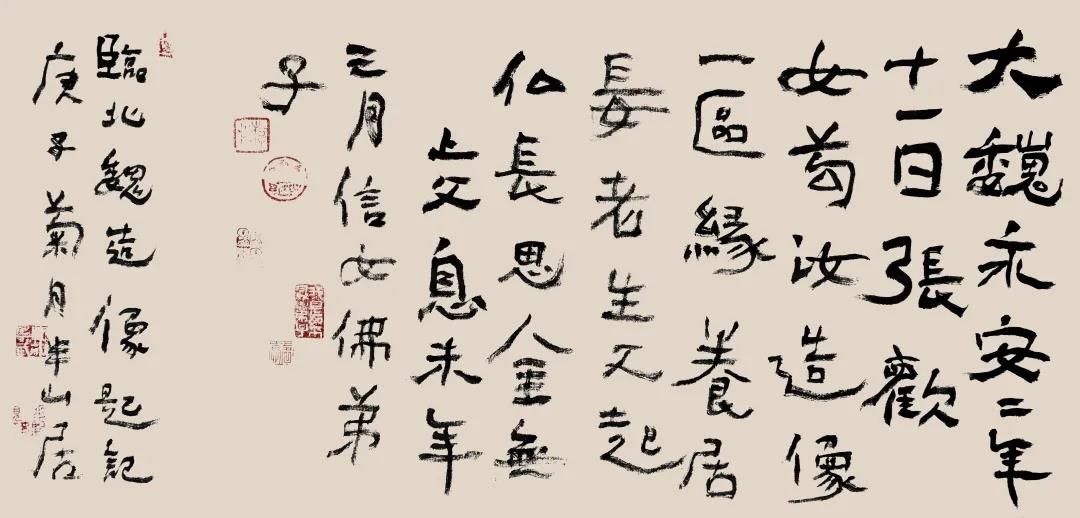 大魏永安二年
十一日張歡
女苟汝造像
一區緣養居
妟老生又起
仏長思金無
息未年
三月信女佛弟
子
臨北魏造像起記
庚子菊月半山居